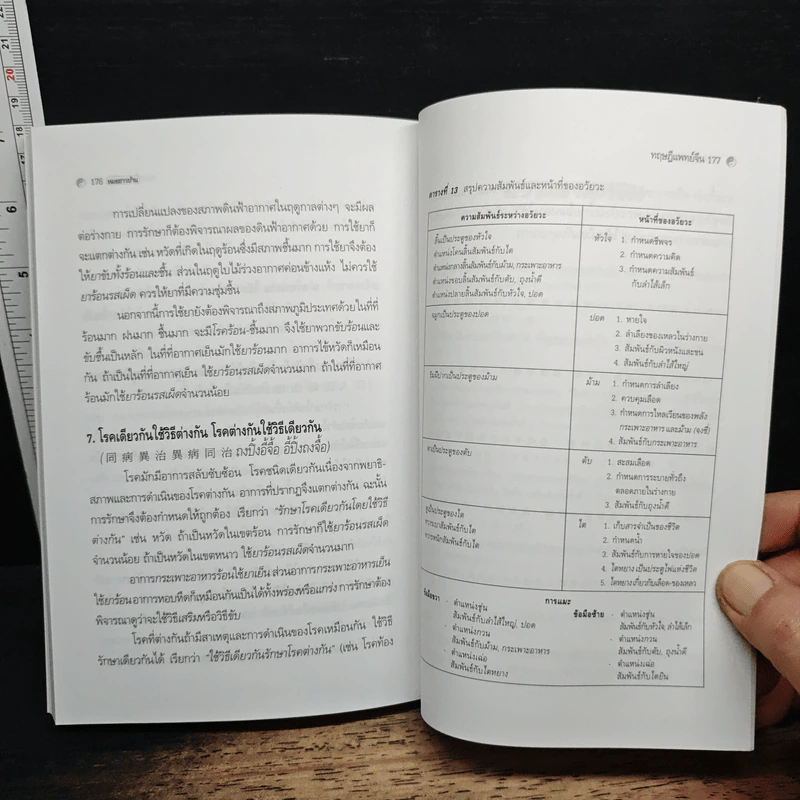 176 หมอชาวบ้าน
การเปลี่ยนแปลงของสภาพดินฟ้าอากาศในฤดูกาลต่างๆ จะมีผล
ต่อร่างกาย การรักษาก็ต้องพิจารณาผลของดินฟ้าอากาศด้วย การใช้ยาก็
จะแตกต่างกัน เช่น หวัดที่เกิดในฤดูร้อนซึ่งมีสภาพชื้นมาก การใช้ยาจึงต้อง
ให้ยาขับทั้งร้อนและชื้น ส่วนในฤดูใบไม้ร่วงอากาศค่อนข้างแห้ง ไม่ควรใช้
ยาร้อนรสเผ็ด ควรให้ยาที่มีความชุ่มชื้น
นอกจากนี้การใช้ยายังต้องพิจารณาถึงสภาพภูมิประเทศด้วย ในที่ที่
ร้อนมาก ฝนมาก ชื้นมาก จะมีโรคร้อน-ชื้นมาก จึงใช้ยาพวกขับร้อนและ
ขับชื้นเป็นหลัก ในที่ที่อากาศเย็นมักใช้ยาร้อนมาก อาการไข้หวัดก็เหมือน
กัน ถ้าเป็นในที่ที่อากาศเย็น ใช้ยาร้อนรสเผ็ดจำนวนมาก ถ้าในที่ที่อากาศ
ร้อนมักใช้ยาร้อนรสเผ็ดจำนวนน้อย
7. โรคเดียวกันใช้วิธีต่างกัน โรคต่างกันใช้วิธีเดียวกัน
(同病異治異病同治 ถงปิ้งอี้จื้อ อี้ปิ้งถงจื้อ)
โรคมักมีอาการสลับซับซ้อน โรคชนิดเดียวกันเนื่องจากพยาธิ-
สภาพและการดำเนินของโรคต่างกัน อาการที่ปรากฏจึงแตกต่างกัน ฉะนั้น
การรักษาจึงต้องกำหนดให้ถูกต้อง เรียกว่า "รักษาโรคเดียวกันโดยใช้วิธี
ต่างกัน" เช่น หวัด ถ้าเป็นหวัดในเขตร้อน การรักษาก็ใช้ยาร้อนรสเผ็ด
จำนวนน้อย ถ้าเป็นหวัดในเขตหนาว ใช้ยาร้อนรสเผ็ดจำนวนมาก
อาการกระเพาะอาหารร้อนใช้ยาเย็น ส่วนอาการกระเพาะอาหารเย็น
ใช้ยาร้อน อาการหอบหืดก็เหมือนกันเป็นได้ทั้งพร่องหรือแกร่ง การรักษาต้อง
พิจารณาดูว่าจะใช้วิธีเสริมหรือวิธีขับ
โรคที่ต่างกันถ้ามีสาเหตุและการดำเนินของโรคเหมือนกัน ใช้วิธี
รักษาเดียวกันได้ เรียกว่า "ใช้วิธีเดียวกันรักษาโรคต่างกัน" (เช่น โรคท้อง
ทฤษฎีแพทย์จีน 177
ตารางที่ 13 สรุปความสัมพันธ์และหน้าที่ของอวัยวะ
ความสัมพันธ์ระหว่างอวัยวะ หน้าที่ของอวัยวะ
ลิ้นเป็นประตูของหัวใจ
ตำแหน่งโคนลิ้นสัมพันธ์กับไต
ตำแหน่งกลางลิ้นสัมพันธ์กับม้าม, กระเพาะอาหาร
ตำแหน่งขอบลิ้นสัมพันธ์กับตับ, ถุงน้ำดี
ตำแหน่งปลายลิ้นสัมพันธ์กับหัวใจ, ปอด
หัวใจ 1. กำหนดชีพจร
2. กำหนดความคิด
3. กำหนดความสัมพันธ์
กับลำไส้เล็ก
จมูกเป็นประตูของปอด
ปอด 1. หายใจ
2. ลำเลียงของเหลวในร่างกาย
3. สัมพันธ์กับผิวหนังและขน
4. สัมพันธ์กับลำไส้ใหญ่
ริมฝีปากเป็นประตูของม้าม
ม้าม 1. กำหนดการลำเลียง
2. ควบคุมเลือด
3. กำหนดการไหลเวียนของพลัง
กระเพาะอาหาร และม้าม (จงชี่)
4. สัมพันธ์กับกระเพาะอาหาร
ตาเป็นประตูของตับ
ตับ 1. สะสมเลือด
2. กำหนดการระบายทั่วถึง
ตลอดภายในร่างกาย
3. สัมพันธ์กับถุงน้ำดี
หูเป็นประตูของไต
ทวารเบาสัมพันธ์กับไต
ทวารหนักสัมพันธ์กับไต
ไต 1. เก็บสารจำเป็นของชีวิต
2. กำหนดน้ำ
3. สัมพันธ์กับการหายใจของปอด
4. ไตหยาง เป็นประตูไฟแห่งชีวิต
5. ไตหยางเกี่ยวกับเลือด-ของเหลว
การแมะ
ข้อมือขวา - ตำแหน่งชุ่น
สัมพันธ์กับลำไส้ใหญ่, ปอด
- ตำแหน่งกวน
สัมพันธ์กับม้าม, กระเพาะอาหาร
- ตำแหน่งเฉ่อ
สัมพันธ์กับไตหยาง
ข้อมือซ้าย - ตำแหน่งชุ่น
สัมพันธ์กับหัวใจ, ลำไส้เล็ก
- ตำแหน่งกวน
สัมพันธ์กับตับ, ถุงน้ำดี
- ตำแหน่งเฉ่อ
สัมพันธ์กับไตยิน